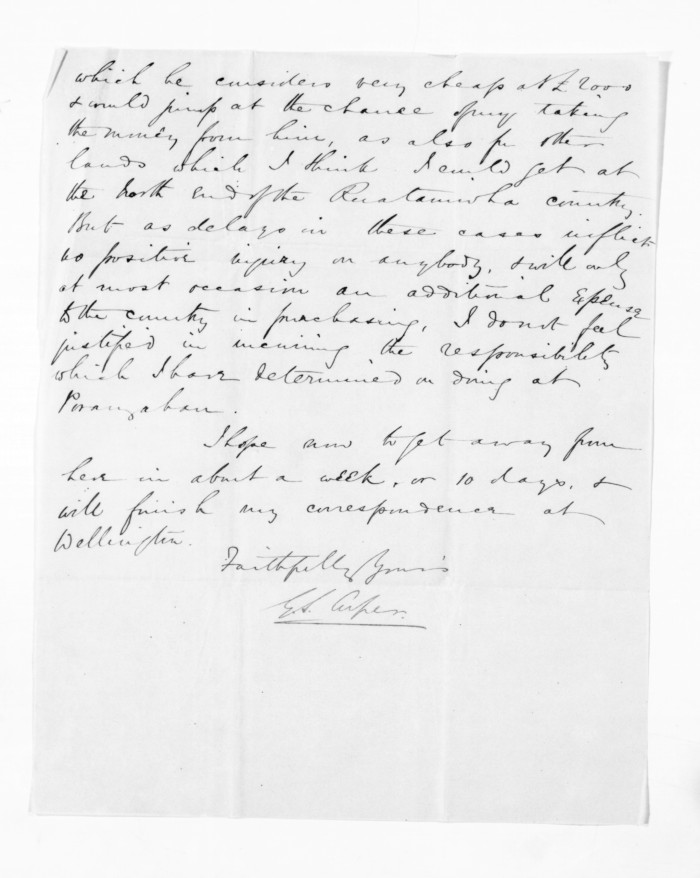 which he considers very cheap at £2000
& would jump at the chance of my taking
the money from him, as also for other
lands which I think I could get at
the North End of the Ruataniwha country.
But as delays in these cases inflict
no positive injury on anybody, & will only
at most occasion an additional Expense
to the country in purchasing, I do not feel
justified in incurring the responsibility
which I have determined on doing at
Porangahau.
I hope now to get away from
here in about a week, or 10 days, &
will finish my correspondence at
Wellington.
Faithfully Yours
G.S. Cooper.